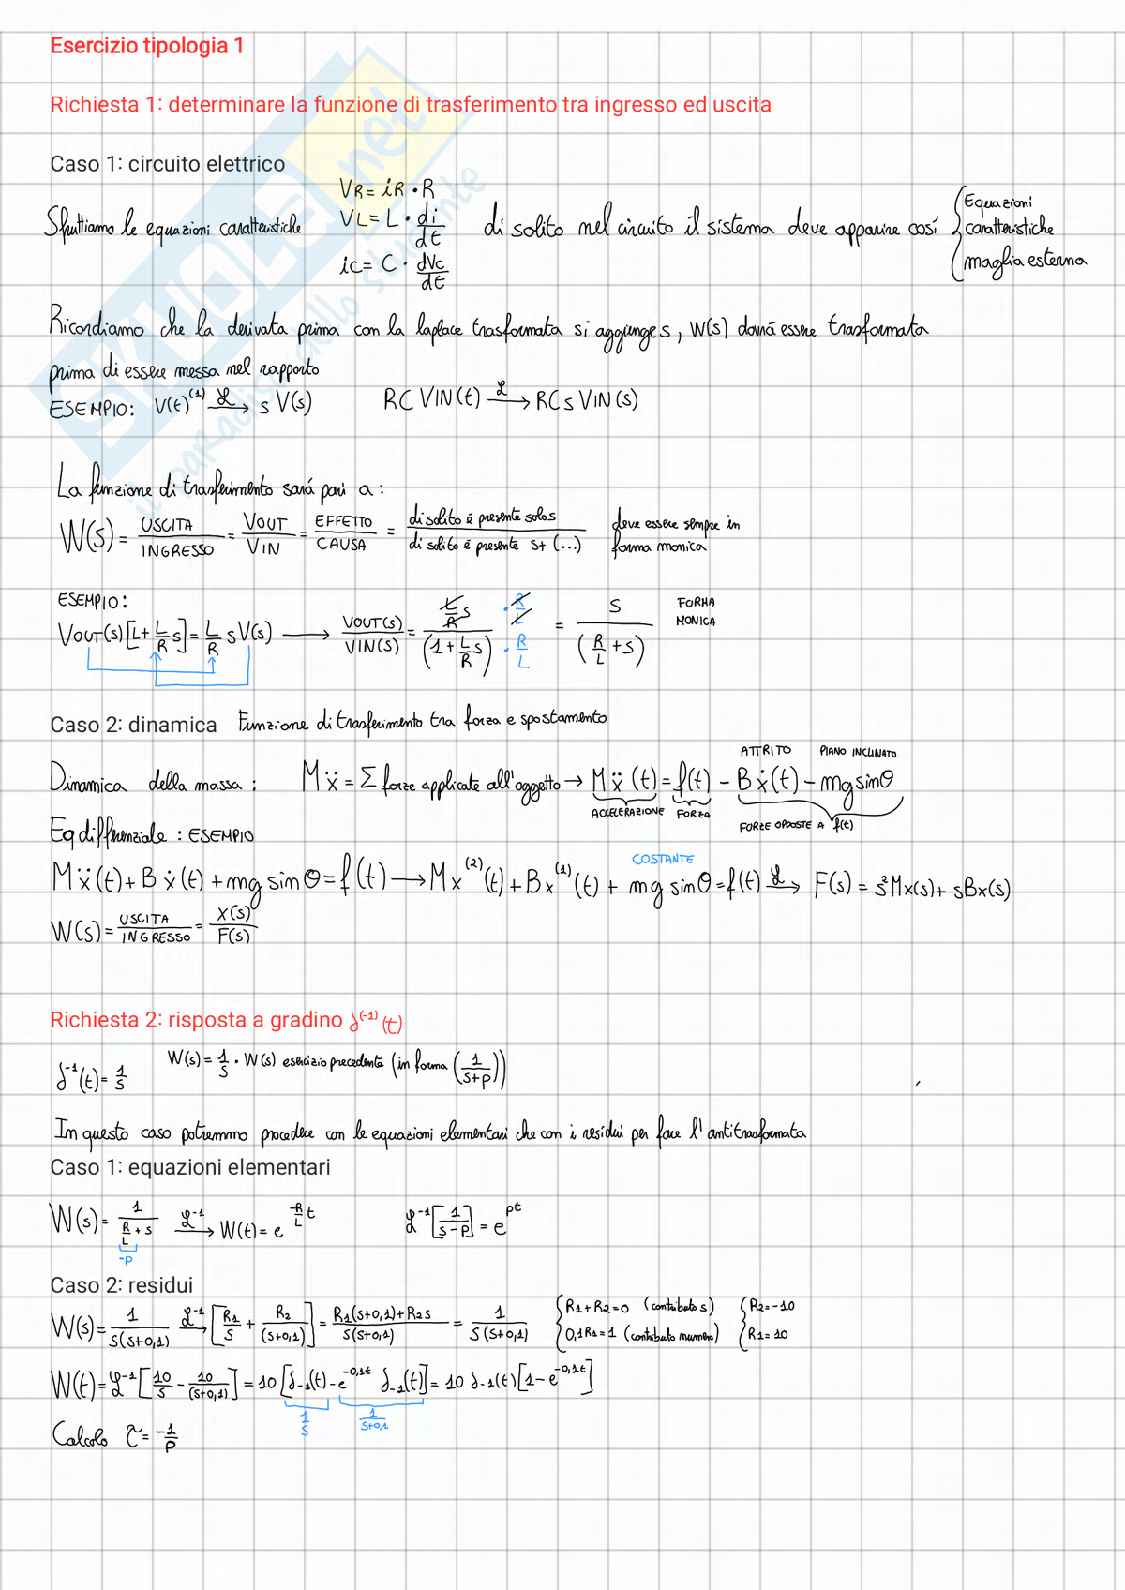 Esercizio tipologia 1
Richiesta 1: determinare la funzione di trasferimento tra ingresso ed uscita
Caso 1: circuito elettrico
Sfruttiamo le equazioni caratteristiche VR = iR • R
VL = L • di/dt
ic = C • dVc/dt
di solito nel circuito il sistema deve apparire così { Equazioni caratteristiche
maglia esterna
Ricordiamo che la derivata prima con la laplace trasformata si aggunge s, W(s) dovrá essere trasformata
prima di essere messa nel rapporto
ESEMPIO: V(t)^(1) ℒ→ s V(s) RC VIN(t) ℒ→ RCs VIN(s)
La funzione di trasferimento sará pari a:
W(s) = USCITA/INGRESSO = VOUT/VIN = EFFETTO/CAUSA = di solito é presente solo s / di solito é presente s+(...) deve essere sempre in forma monica
ESEMPIO:
VOUT(s)[L + L/R s] = L/R s V(s) → VOUT(s)/VIN(s) = L/R s / (1 + L/R s) • R/L / • R/L = s / (R/L + s) FORMA MONICA
Caso 2: dinamica Funzione di trasferimento tra forza e spostamento
ATTRITO PIANO INCLINATO
Dinamica della massa: Mẍ = Σ forze applicate all'oggetto → Mẍ(t) = f(t) - Bẋ(t) - mg sinθ
ACCELERAZIONE FORZA FORZE OPPOSTE A f(t)
Eq differenziale: ESEMPIO
COSTANTE
Mẍ(t) + Bẋ(t) + mg sinθ = f(t) → Mx^(2)(t) + Bx^(1)(t) + mg sinθ = f(t) ℒ→ F(s) = s²Mx(s) + sBx(s)
W(s) = USCITA/INGRESSO = X(s)/F(s)
Richiesta 2: risposta a gradino δ^(-1)(t)
δ^-1(t) = 1/s W(s) = 1/s • W(s) esercizio precedente (in forma (1/(s+p)))
In questo caso potremmo procedere con le equazioni elementari che con i residui per fare l'antitrasformata
Caso 1: equazioni elementari
W(s) = 1/(R/L + s) ℒ^-1→ W(t) = e^(-R/L t) ℒ^-1[1/(s-p)] = e^pt
-p
Caso 2: residui
W(s) = 1/(s(s+0,1)) ℒ^-1→ [R1/s + R2/(s+0,1)] = (R1(s+0,1)+R2 s)/(s(s+0,1)) = 1/(s(s+0,1)) { R1+R2=0 (contributo s) { R2=-10
0,1R1=1 (contributo numero) R1=10
W(t) = ℒ^-1[10/s - 10/(s+0,1)] = 10[δ-1(t) - e^-0,1t δ-1(t)] = 10 δ-1(t)[1-e^-0,1t]
1/s 1/(s+0,1)
Calcolo τ = -1/p
SKUOLA.net